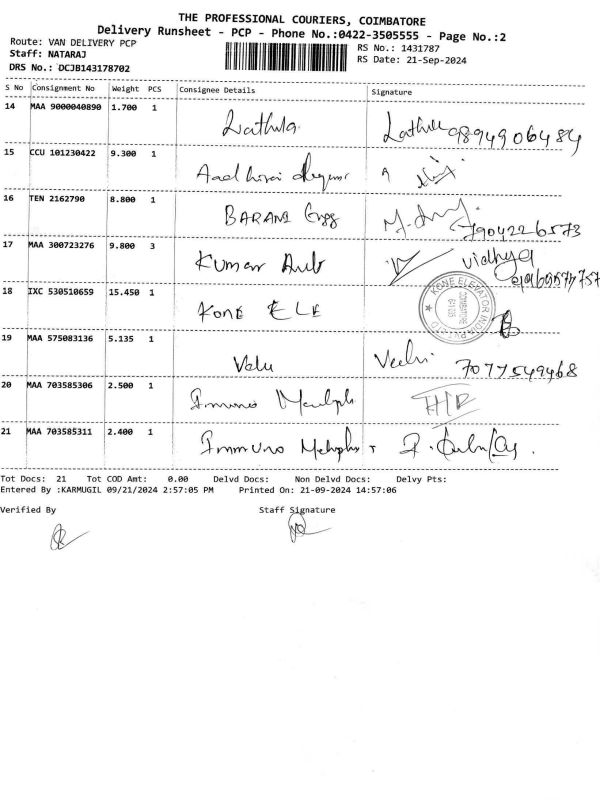 THE PROFESSIONAL COURIERS, COIMBATORE
Delivery Runsheet - PCP - Phone No.:0422-3505555 - Page No.:2
Route: VAN DELIVERY PCP
Staff: NATARAJ
DRS No.: DCJB143178702
RS No.: 1431787
RS Date: 21-Sep-2024
S No Consignment No Weight PCS Consignee Details Signature
14 MAA 9000040890 1.700 1 Lathula 9894906484
15 CCU 101230422 9.300 1
16 TEN 2162790 8.800 1 BARANI Engg 7904226573
17 MAA 300723276 9.800 3 Kumar Vidhya
18 IXC 530510659 15.450 1 KONE ELE
KONE ELEVATOR INDIA PVT LTD
19 MAA 575083136 5.135 1 Velu 7077549468
20 MAA 703585306 2.500 1
21 MAA 703585311 2.400 1 Immuno
Tot Docs: 21 Tot COD Amt: 0.00 Delvd Docs: Non Delvd Docs: Delvy Pts:
Entered By :KARMUGIL 09/21/2024 2:57:05 PM Printed On: 21-09-2024 14:57:06
Verified By Staff Signature